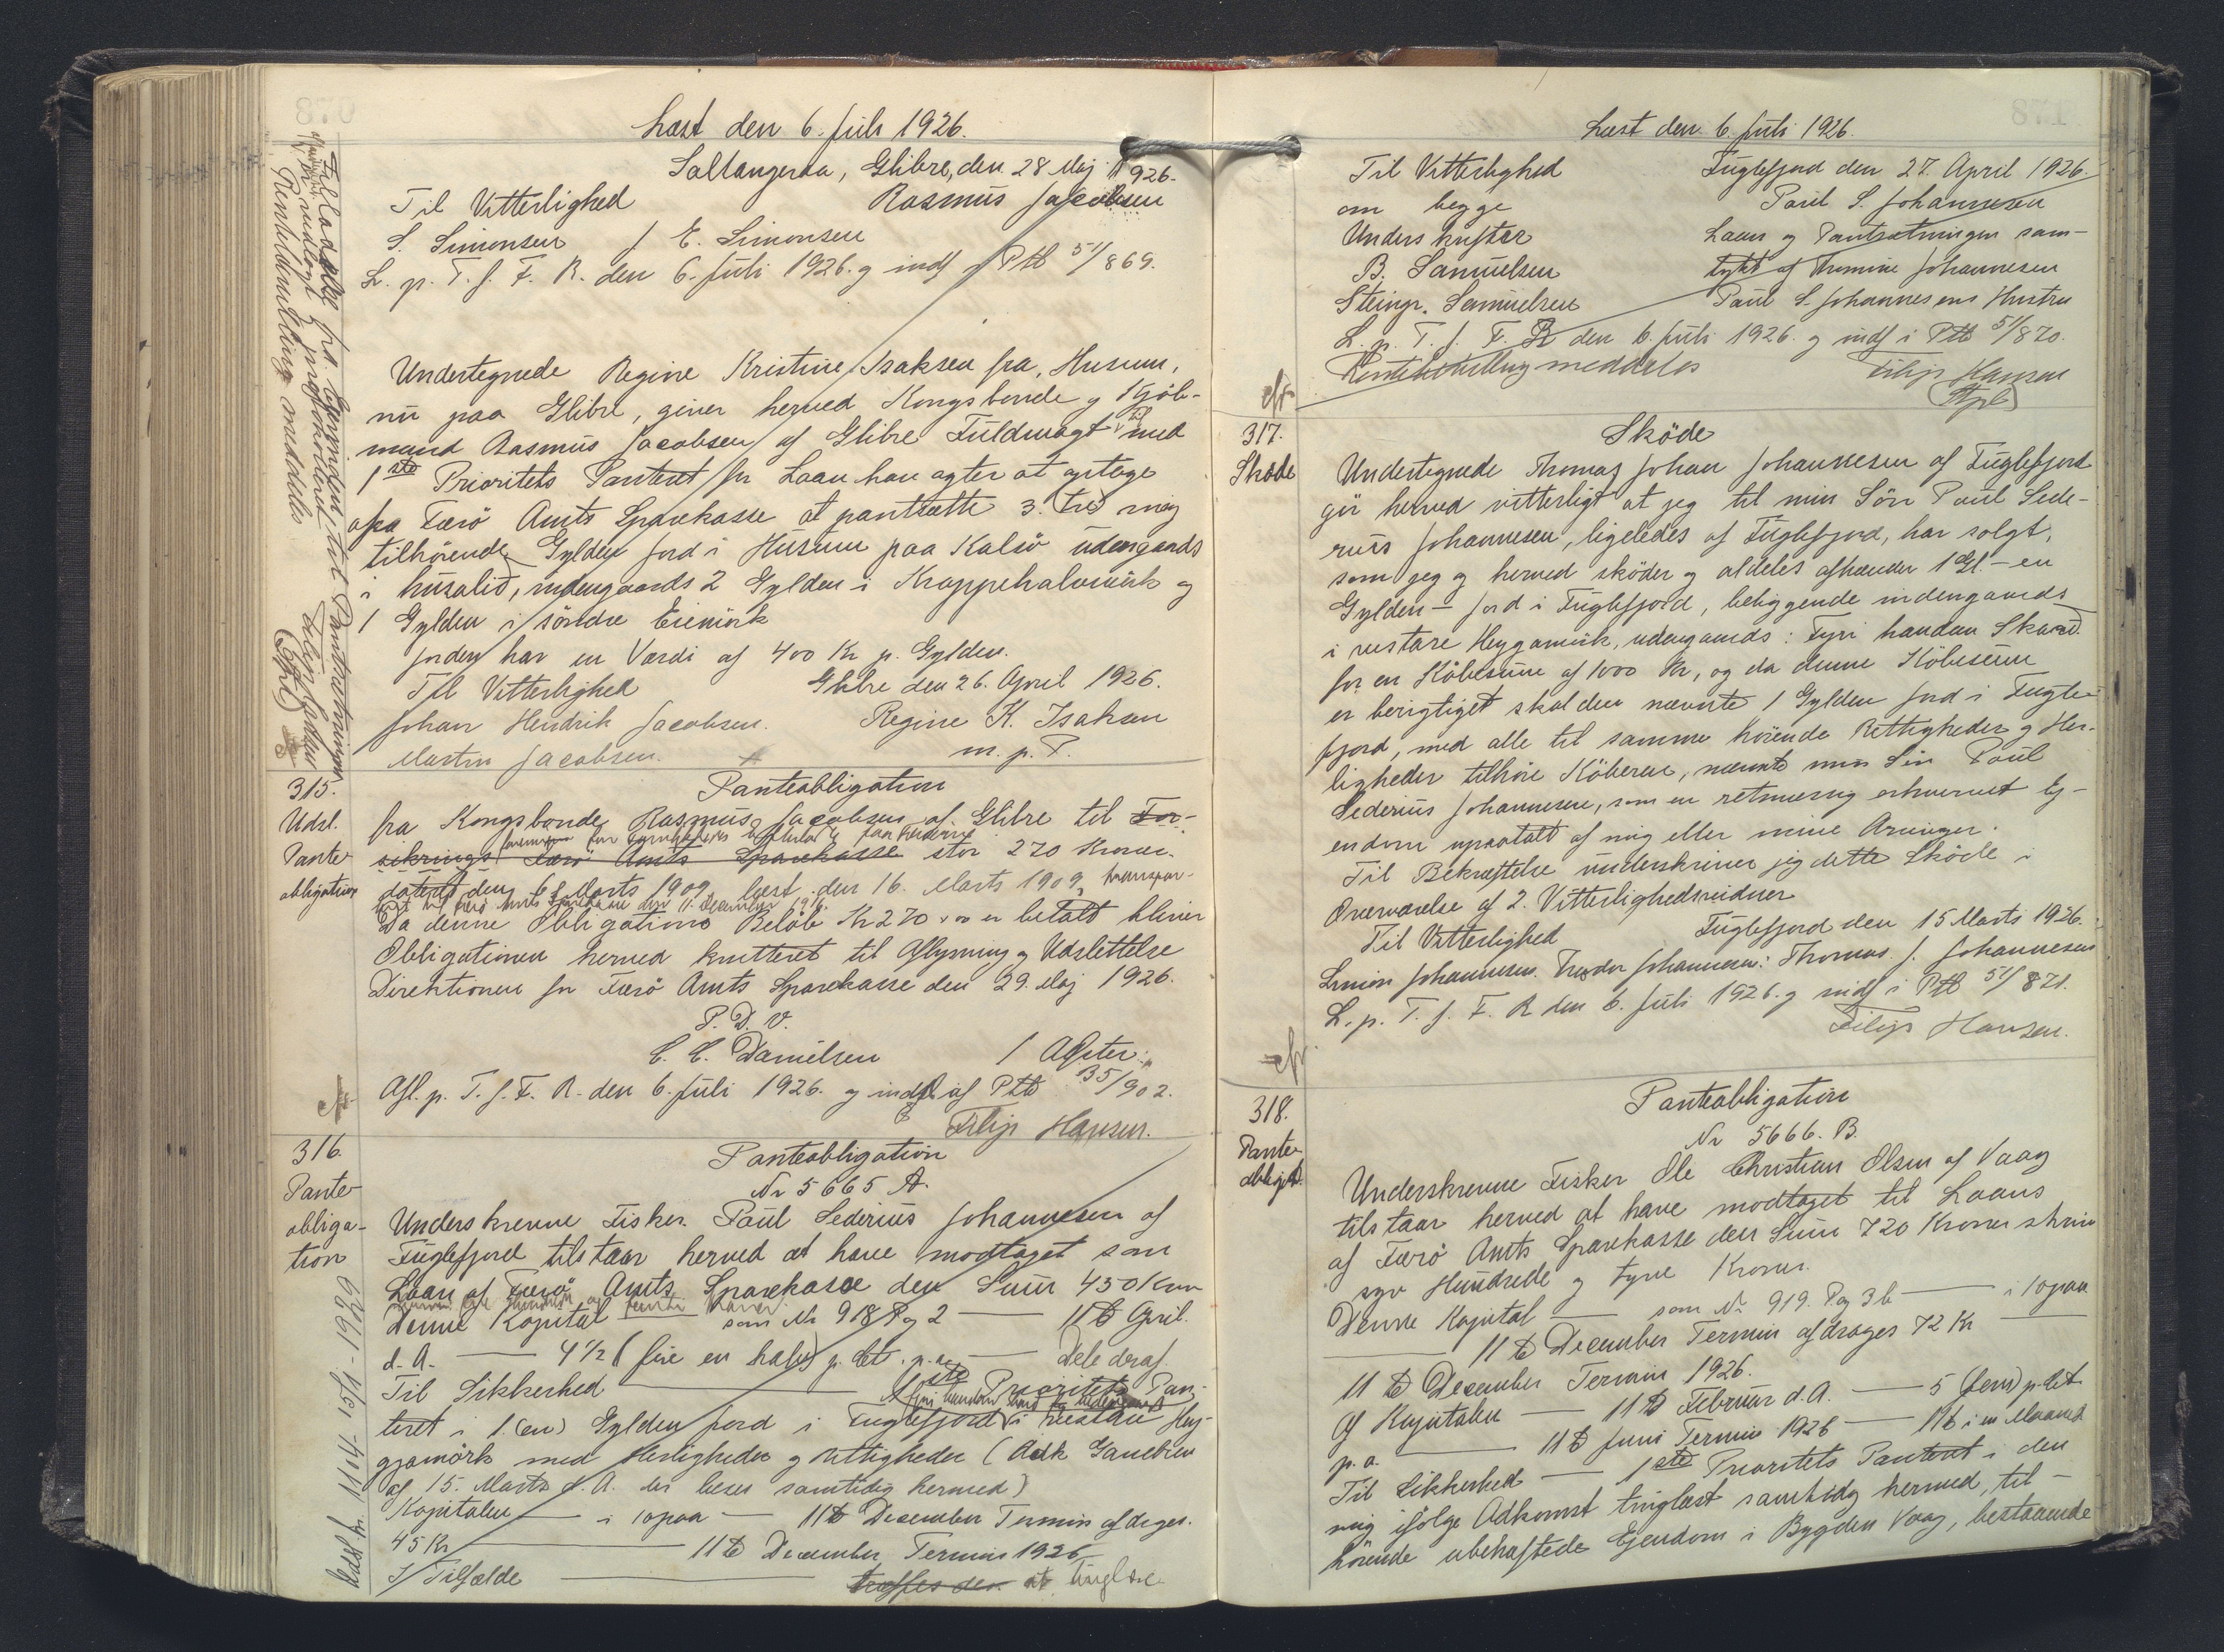 Læst den 6. Juli 1926.
Saltangeraa, Glibre, den 28 Maj 1926.
Til Vitterlighed Rasmus Jacobsen
S. Simonsen J E. Simonsen
L. p. T. f. F. R. den 6. Juli 1926. og indf i Ptb 51/869.
Undertegnede Regine Kristine Isaksen fra Husum,
nu paa Glibre, giver herved Kongsbonde og Kjöb-
mand Rasmus Jacobsen af Glibre Fuldmagt til med
1ste Prioritets Panteret for Laan han agter at optage
afsa Færö Amts Sparekasse at pantsætte 3. tre mig
tilhörende Gylden Jord i Husum paa Kalsö udengaards
i husalid, indengaards 2 Gylden i Kroppehalvmörk og
1 Gylden i söndre Eiemörk
Jorden har en Værdi af 400 Kr p. Gylden.
Til Vitterlighed Glibre den 26. April 1926.
Johan Hendrik Jacobsen. Regine K. Isaksen
Martin Jacobsen. m. p. P.
315.
Udsl.
Pante
obligation
Panteobligation
fra Kongsbonde Rasmus Jacobsen af Glibre til For-
sikrings Færö Amts Sparekasse stor 270 Kroner.
dateret den 6 Marts 1909 læst den 16. Marts 1909, transpor-
teret til Færö Amts Sparekasse den 11. December 1916.
Da denne Obligations Belöb Kr 270 er betalt bliver
Obligationen herved kvitteret til Aflysning og Udslettelse
Direktionen for Færö Amts Sparekasse den 29. Maj 1926.
P. D. V.
C. C. Danielsen
Afl. p. T. f. F. R. den 6. Juli 1926. og indf af Ptb B5/902.
Filip Hansen.
316.
Pante
obliga-
tion
Panteobligation
Nr 5665 A.
Underskrevne Fisker Poul Sederius Johannesen af
Fuglefjord tilstaar herved at have modtaget som
Laan af Færö Amts Sparekasse den Sum 450 Kroner
Denne Kapital som Nr 918 Pag 2 11te April.
d. A. 4 1/2 (fire en halv) p. Ct. p. a. Dele deraf.
Til Sikkerhed 1ste Prioritets Pan-
teret i 1. (en) Gylden Jord i Fuglefjord i rustare Hey-
gjamörk med Herligheder og Rettigheder (Adk Gavebrev
af 15. Marts d. A. der læses samtidig hermed)
Kapitalen i 10 paa 11te December Termin afdrages.
45 Kr 11te December Termin 1926
I Tilfælde træffes den at tinglæse
Læst den 6. Juli 1926.
Til Vitterlighed Fuglefjord den 27. April 1926.
om begge Poul S. Johannesen
Underskrifter Laan og Pantsætningen sam-
B. Samuelsen tykt af Thomine Johannesen
Steingr. Samuelsen Poul S. Johannesens Hustru
L. p. T. f. F. R den 6. Juli 1926. og indf i Ptb 51/870.
meddeles Filip Hansen
317.
Sköde
Sköde
Undertegnede Thomas Johan Johannesen af Fuglefjord
gör herved vitterligt at jeg til min Sön Poul Sede-
rius Johannesen, ligeledes af Fuglefjord, har solgt,
som jeg og herved sköder og aldeles afhænder 1 Gl. - en
Gylden - Jord i Fuglefjord, beliggende indengaards
i rustare Heygamörk, udengaards: Fyri handan Skard.
for en Köbesum af 1000 Kr, og da denne Köbesum
er berigtiget skal den nævnte 1 Gylden Jord i Fugle-
fjord, med alle til samme hörende Rettigheder og Her-
ligheder tilhöre Köberen, nævnte min Sön Poul
Sederius Johannesen, som en retmæssig erhvervet Ej-
endom upaatalt af mig eller mine Arvinger.
Til Bekræftelse underskriver jeg dette Sköde i
Overværelse af 2. Vitterlighedsvidner
Til Vitterlighed Fuglefjord den 15 Marts 1926.
Simon Johannesen. Johannesen: Thomas J. Johannesen
L. p. T. f. F. R den 6. Juli 1926. og indf i Ptb 51/871.
Filip Hansen.
318.
Pante
obligat.
Panteobligation
Nr 5666. B.
Underskrevne Fisker Ole Christian Olsen af Vaag
tilstaar herved at have modtaget til Laans
af Færö Amts Sparekasse den Sum 720 Kroner skriv
syv Hundrede og tyve Kroner.
Denne Kapital som Nr 919. Pag 3 b i 10 paa
11te December Termin afdrages 72 Kr
11te December Termin 1926.
Af Kapitalen 11te Februar d. A. 5 (fem) p. Ct
p. a. 11te Juni Termin 1926 11te i en Maaned
Til Sikkerhed 1ste Prioritets Panteret i den
mig ifölge Adkomst tinglæst samtidig hermed, til-
hörende ubehæftede Ejendom i Bygden Vaag, bestaaende